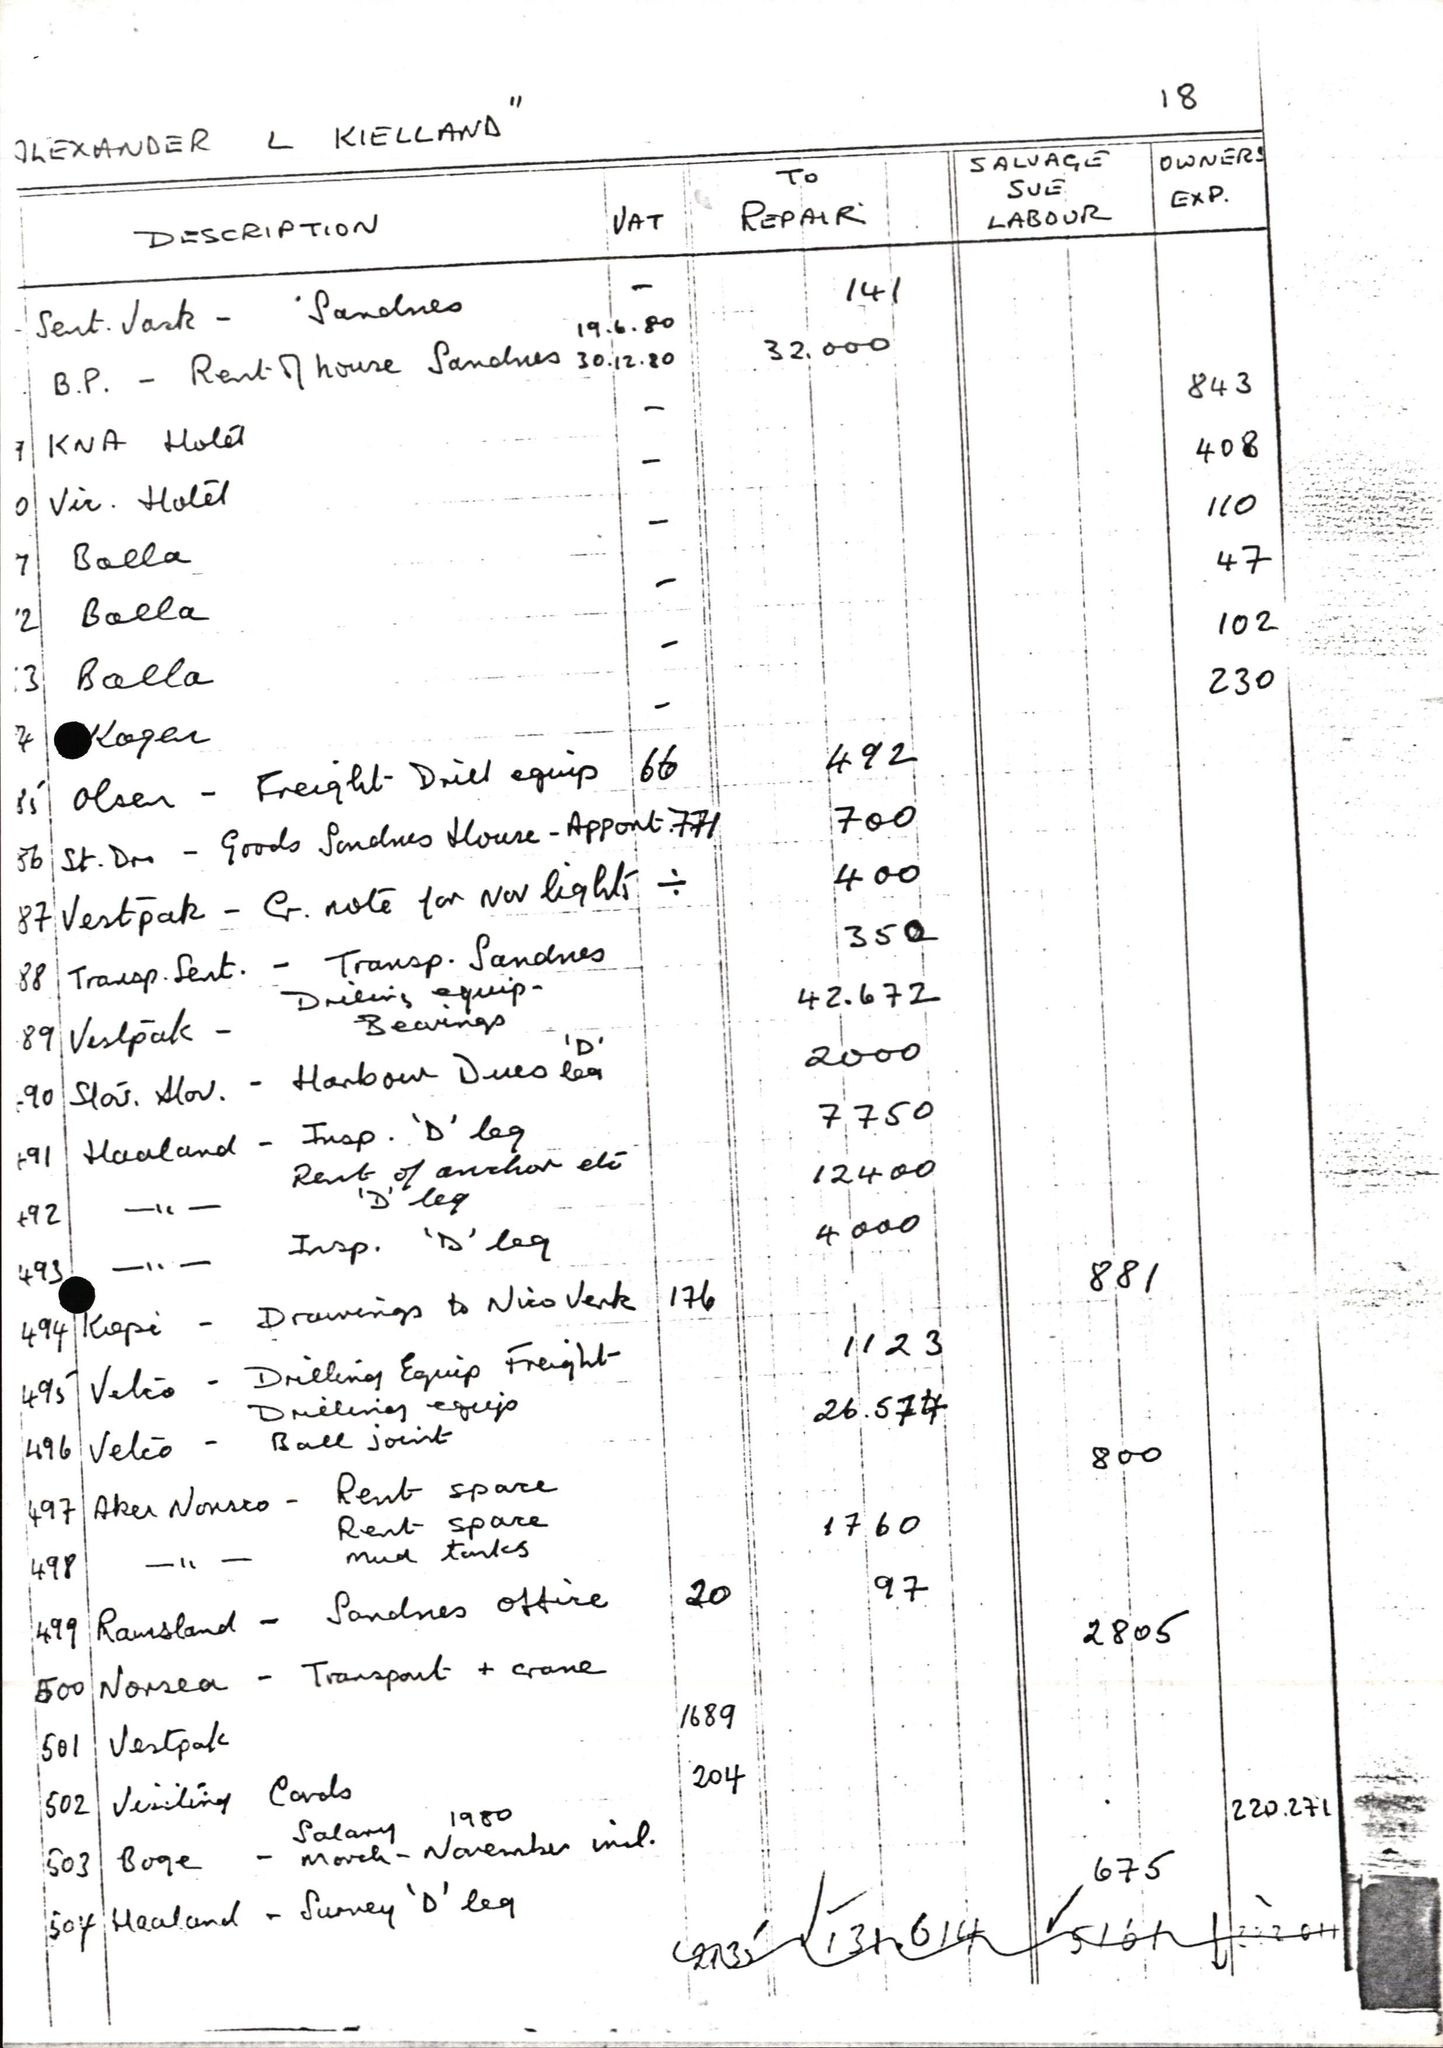 ALEXANDER L KIELLAND" 18
DESCRIPTION VAT TO REPAIR SALVAGE SUE LABOUR OWNERS EXP.
Sent. Vask - Sandnes - 141
B.P. - Rent of house Sandnes 19.6.80 30.12.80 32.000
7 KNA Hotel - 843
0 Vic. Hotel - 408
7 Balla - 110
2 Balla - 47
3 Balla - 102
4 Kogen - 230
85 Olsen - Freight Drill equip 66 492
86 St. Dro - Goods Sandnes House - Apport. 771 700
87 Vestpak - Cr. note for Nav lights ÷ 400
88 Transp. Sent. - Transp. Sandnes 350
89 Vestpak - Drilling equip - Bearings 42.672
90 Stav. Hav. - Harbour Dues 'D' leg 2000
491 Haaland - Insp. 'D' leg 7750
492 —"— Rent of anchor etc 'D' leg 12400
493 —"— Insp. 'D' leg 4000
494 Kopi - Drawings to Nico Verk 176 881
495 Velco - Drilling Equip Freight 1123
496 Velco - Drilling equip Ball joint 26.574
497 Aker Norsco - Rent space 800
498 —"— Rent space mud tanks 1760
499 Ramsland - Sandnes office 20 97
500 Norsea - Transport + crane 2805
501 Vestpak 1689
502 Visiting Cards 204
503 Boge - Salary 1980 March - November incl. 220.271
504 Haaland - Survey 'D' leg 675
131.614 5161